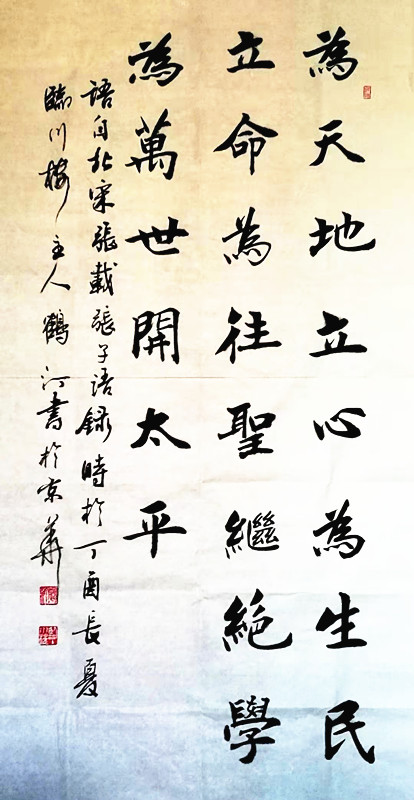 為天地立心為生民
立命為往聖繼絕學
為萬世開太平
語自北宋張載張子語錄時於丁酉長夏
臨川樓主人鶴汀書於京華